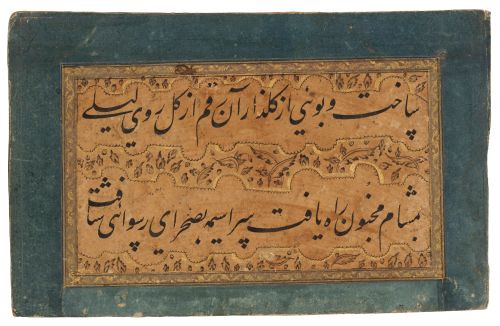 ساخت و بوئی از گلذار آن رقم از گل روی لیلے
بمشام مجنون راه یافت سراسیمه بصحرای رسوائی شتافت